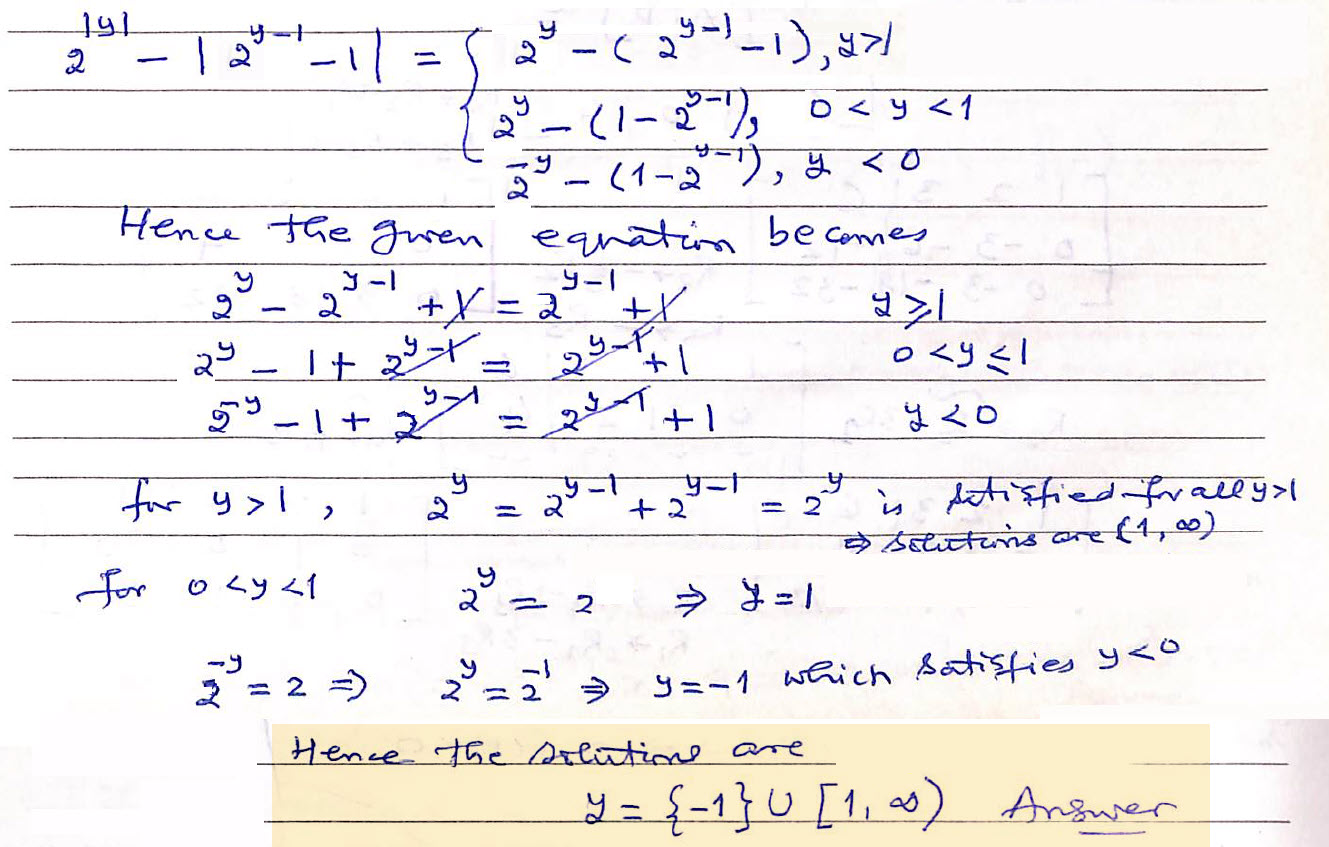 2^|y| − |2^{y−1} − 1| = { 2^y − (2^{y−1} − 1), y>1
2^y − (1 − 2^{y−1}), 0 < y < 1
2^{−y} − (1 − 2^{y−1}), y < 0
Hence the given equation becomes
2^y − 2^{y−1} + 1 = 2^{y−1} + 1 y ≥ 1
2^y − 1 + 2^{y−1} = 2^{y−1} + 1 0 < y ≤ 1
2^{−y} − 1 + 2^{y−1} = 2^{y−1} + 1 y < 0
for y > 1, 2^y = 2^{y−1} + 2^{y−1} = 2^y is satisfied for all y>1
⇒ solutions are (1, ∞)
for 0 < y < 1 2^y = 2 ⇒ y = 1
2^{−y} = 2 ⇒ 2^y = 2^{−1} ⇒ y = −1 which satisfies y < 0
Hence the solutions are
y = {−1} ∪ [1, ∞) Answer